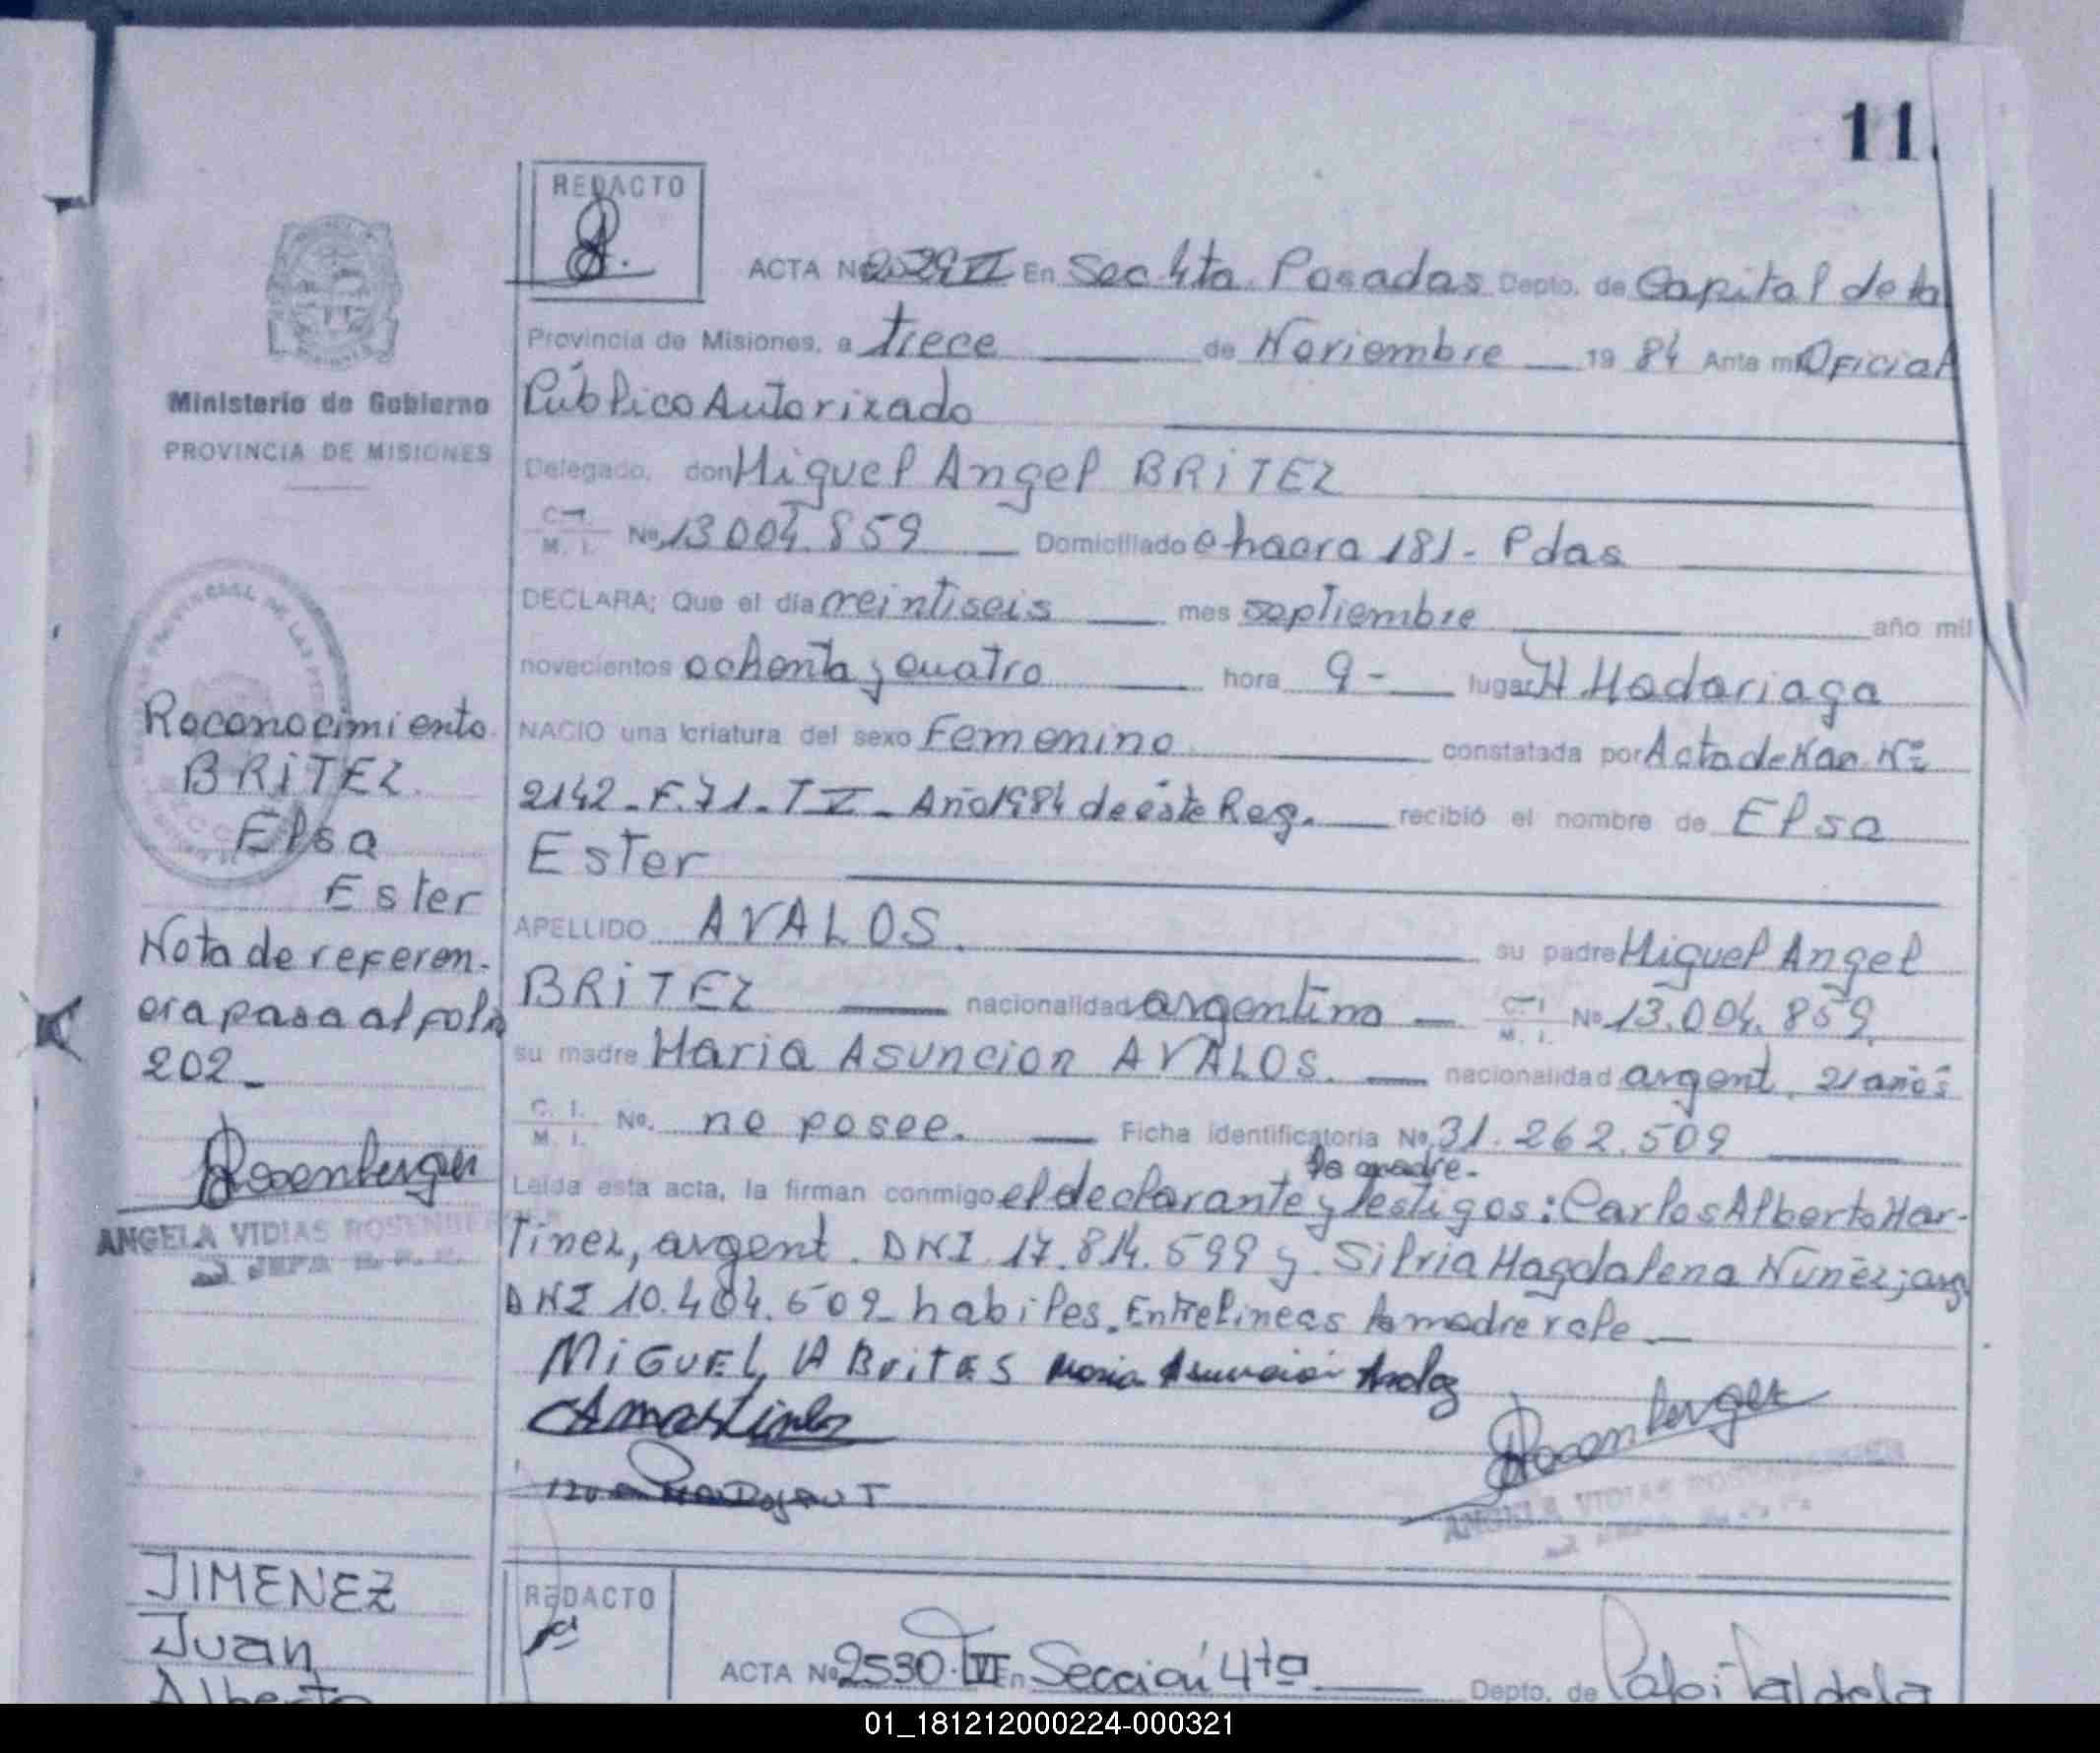 11
REDACTO
ACTA Nº 2529 VI En Sec 4ta. Posadas Depto. de Capital de la
Provincia de Misiones, a trece de Noviembre 19 84 Ante mi Oficial
Público Autorizado
Ministerio de Gobierno
PROVINCIA DE MISIONES
Delegado, don Miguel Angel BRiTEZ
C. I. M. I. Nº 13004.859 Domiciliado chacra 181 - Pdas
DECLARA; Que el día veintiseis mes septiembre año mil
novecientos ochenta y cuatro hora 9 - lugar H Madariaga
NACIO una criatura del sexo Femenino constatada por Acta de Nac. Nº
2142 - F. 71 - T V - Año 1984 de éste Reg. recibió el nombre de Elsa
Ester
APELLIDO AVALOS. su padre Miguel Angel
BRiTEZ nacionalidad argentino C. I. M. I. Nº 13.004.859
su madre Maria Asuncion AVALOS. nacionalidad argent. 21 años
C. I. M. I. No. no posee. Ficha identificatoria Nº 31.262.509
la madre.
Leída esta acta, la firman conmigo el declarante y testigos: Carlos Alberto Mar-
tinez, argent. DNI 17.814.599 y Silvia Magdalena Nuñez; arg
DNI 10.404.609 habiles. Entrelineas la madre vale
MiGUEL A BRiTES Maria Asuncion Avalos
CAMartinez
Rosenberger
ANGELA VIDIAS ROSENBERGER
Reconocimiento
BRiTEZ
Elsa
Ester
Nota de referen-
cia pasa al folio
202
Rosenberger
ANGELA VIDIAS ROSENBERGER
JEFA
JIMENEZ
Juan
Alberto
REDACTO
ACTA Nº 2530. T VI En Sección 4ta Depto. de Capital de la
01_181212000224-000321